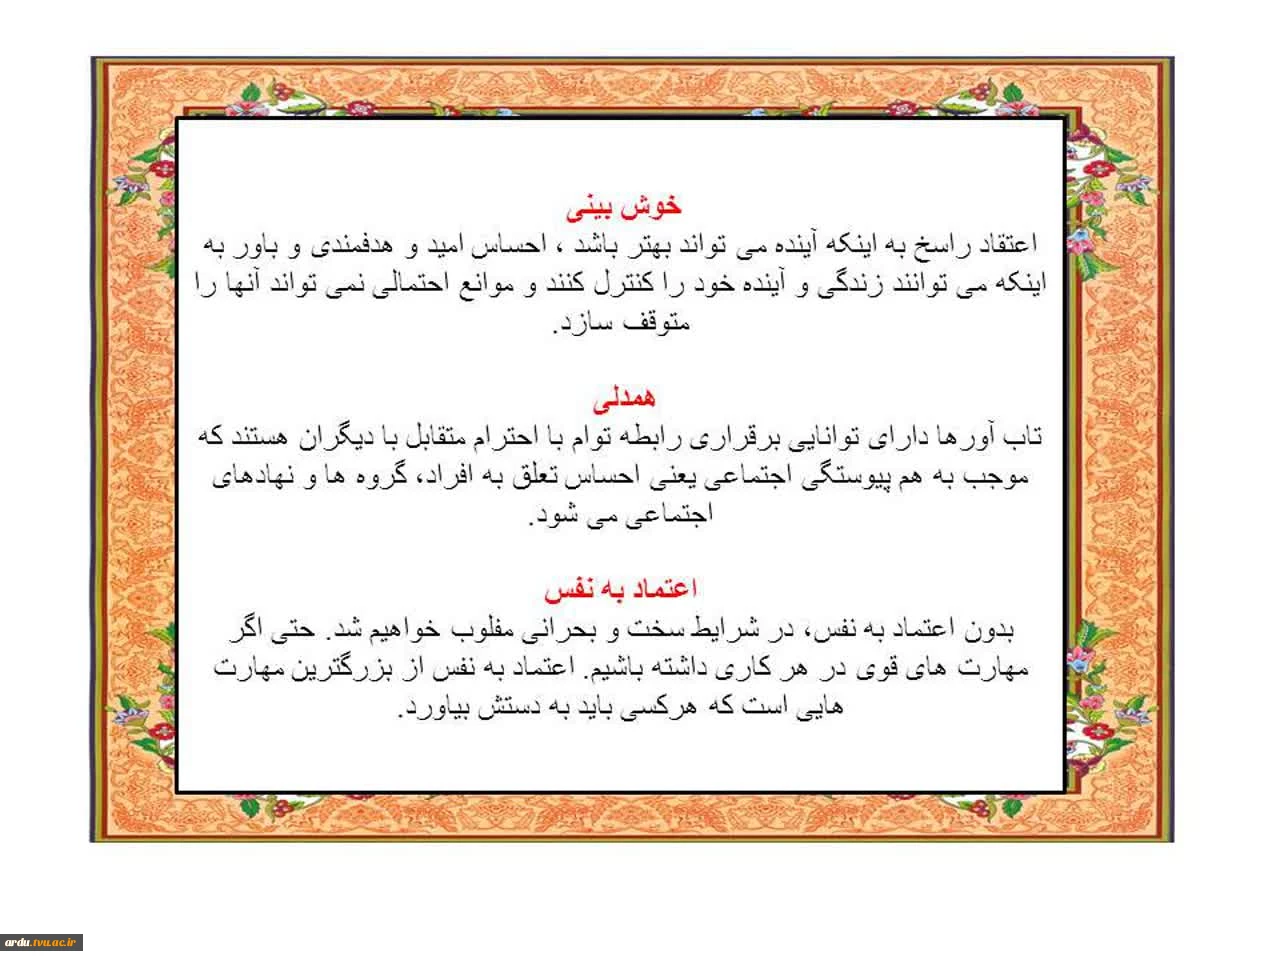 خوش بینی
اعتقاد راسخ به اینکه آینده می تواند بهتر باشد ، احساس امید و هدفمندی و باور به
اینکه می توانند زندگی و آینده خود را کنترل کنند و موانع احتمالی نمی تواند آنها را
متوقف سازد.
همدلی
تاب آورها دارای توانایی برقراری رابطه توام با احترام متقابل با دیگران هستند که
موجب به هم پیوستگی اجتماعی یعنی احساس تعلق به افراد، گروه ها و نهادهای
اجتماعی می شود.
اعتماد به نفس
بدون اعتماد به نفس، در شرایط سخت و بحرانی مفلوب خواهیم شد. حتی اگر
مهارت های قوی در هر کاری داشته باشیم. اعتماد به نفس از بزرگترین مهارت
هایی است که هرکسی باید به دستش بیاورد.
ardu.tvu.ac.ir